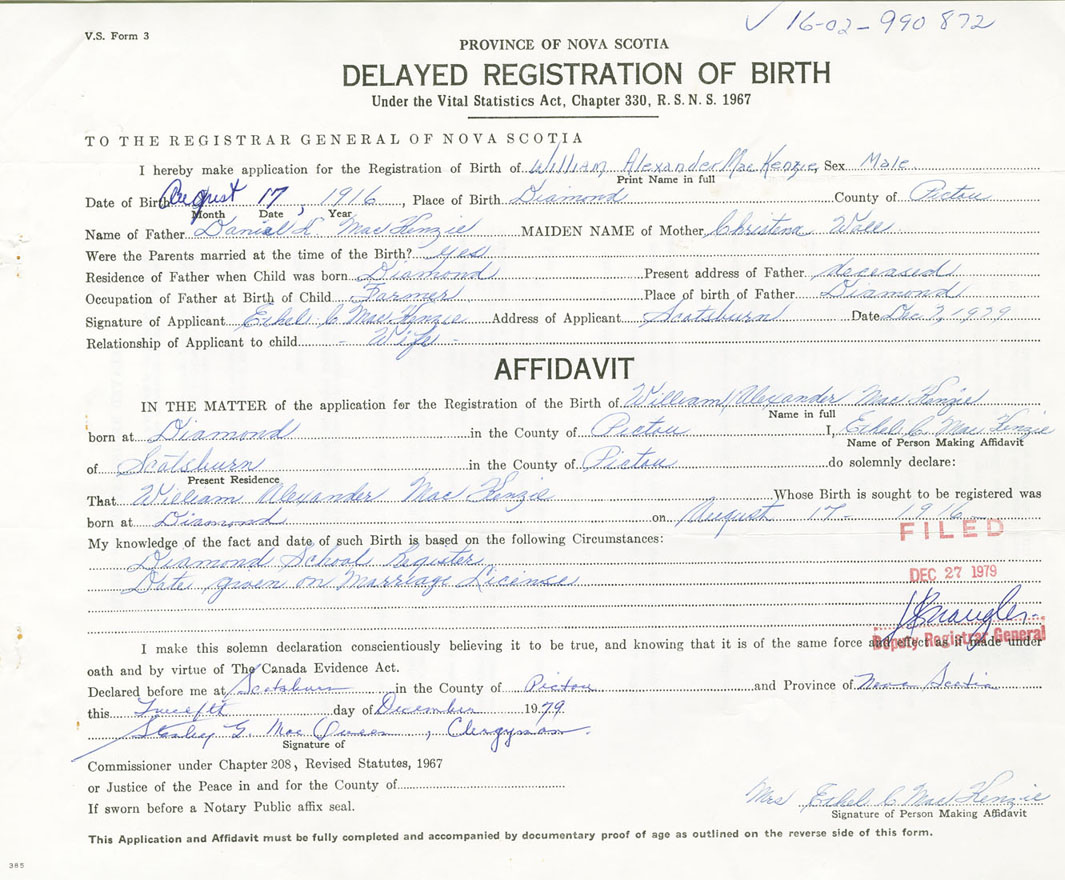 16-02-990 872
V.S. Form 3
PROVINCE OF NOVA SCOTIA
DELAYED REGISTRATION OF BIRTH
Under the Vital Statistics Act, Chapter 330, R. S. N. S. 1967
TO THE REGISTRAR GENERAL OF NOVA SCOTIA
I hereby make application for the Registration of Birth of William Alexander MacKenzie, Sex Male
Print Name in full
Date of Birth August 17, 1916, Place of Birth Diamond County of Pictou
Month Date Year
Name of Father Daniel MacKenzie MAIDEN NAME of Mother Christena
Were the Parents married at the time of the Birth? Yes
Residence of Father when Child was born Diamond Present address of Father deceased
Occupation of Father at Birth of Child Farmer Place of birth of Father Diamond
Signature of Applicant Ethel C MacKenzie Address of Applicant Scotsburn Date Dec 7, 1979
Relationship of Applicant to child - Wife -
AFFIDAVIT
IN THE MATTER of the application for the Registration of the Birth of William Alexander MacKenzie
Name in full
born at Diamond in the County of Pictou I, Ethel C MacKenzie
Name of Person Making Affidavit
of Scotsburn in the County of Pictou do solemnly declare:
Present Residence
That William Alexander MacKenzie Whose Birth is sought to be registered was
born at Diamond on August 17 - 1916
My knowledge of the fact and date of such Birth is based on the following Circumstances:
FILED
Diamond School Register
Date given on Marriage License
DEC 27 1979
Deputy Registrar General
I make this solemn declaration conscientiously believing it to be true, and knowing that it is of the same force and effect as if made under
oath and by virtue of The Canada Evidence Act.
Declared before me at Scotsburn in the County of Pictou and Province of Nova Scotia
this Twelfth day of December 1979
Stanley G. MacQueen, Clergyman.
Signature of
Commissioner under Chapter 208, Revised Statutes, 1967
or Justice of the Peace in and for the County of
If sworn before a Notary Public affix seal.
Mrs Ethel C MacKenzie
Signature of Person Making Affidavit
This Application and Affidavit must be fully completed and accompanied by documentary proof of age as outlined on the reverse side of this form.
385